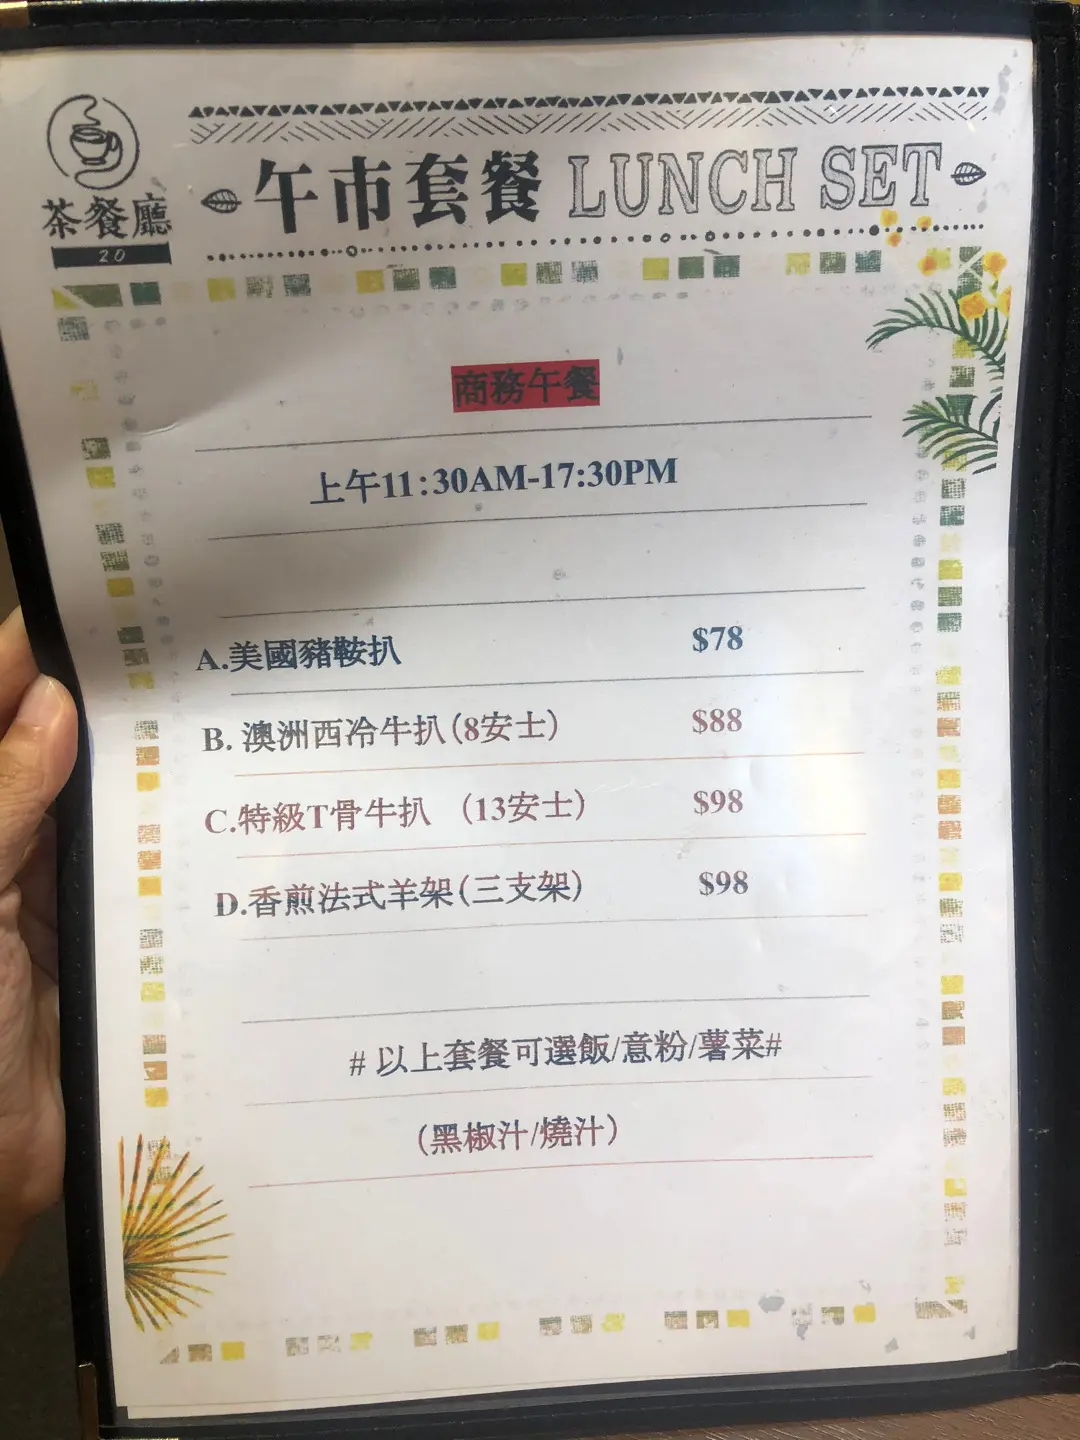 茶餐廳
20
午市套餐 LUNCH SET
商務午餐
上午11:30AM-17:30PM
A.美國豬鞍扒 $78
B. 澳洲西冷牛扒(8安士) $88
C.特級T骨牛扒 (13安士) $98
D.香煎法式羊架(三支架) $98
# 以上套餐可選飯/意粉/薯菜#
(黑椒汁/燒汁)